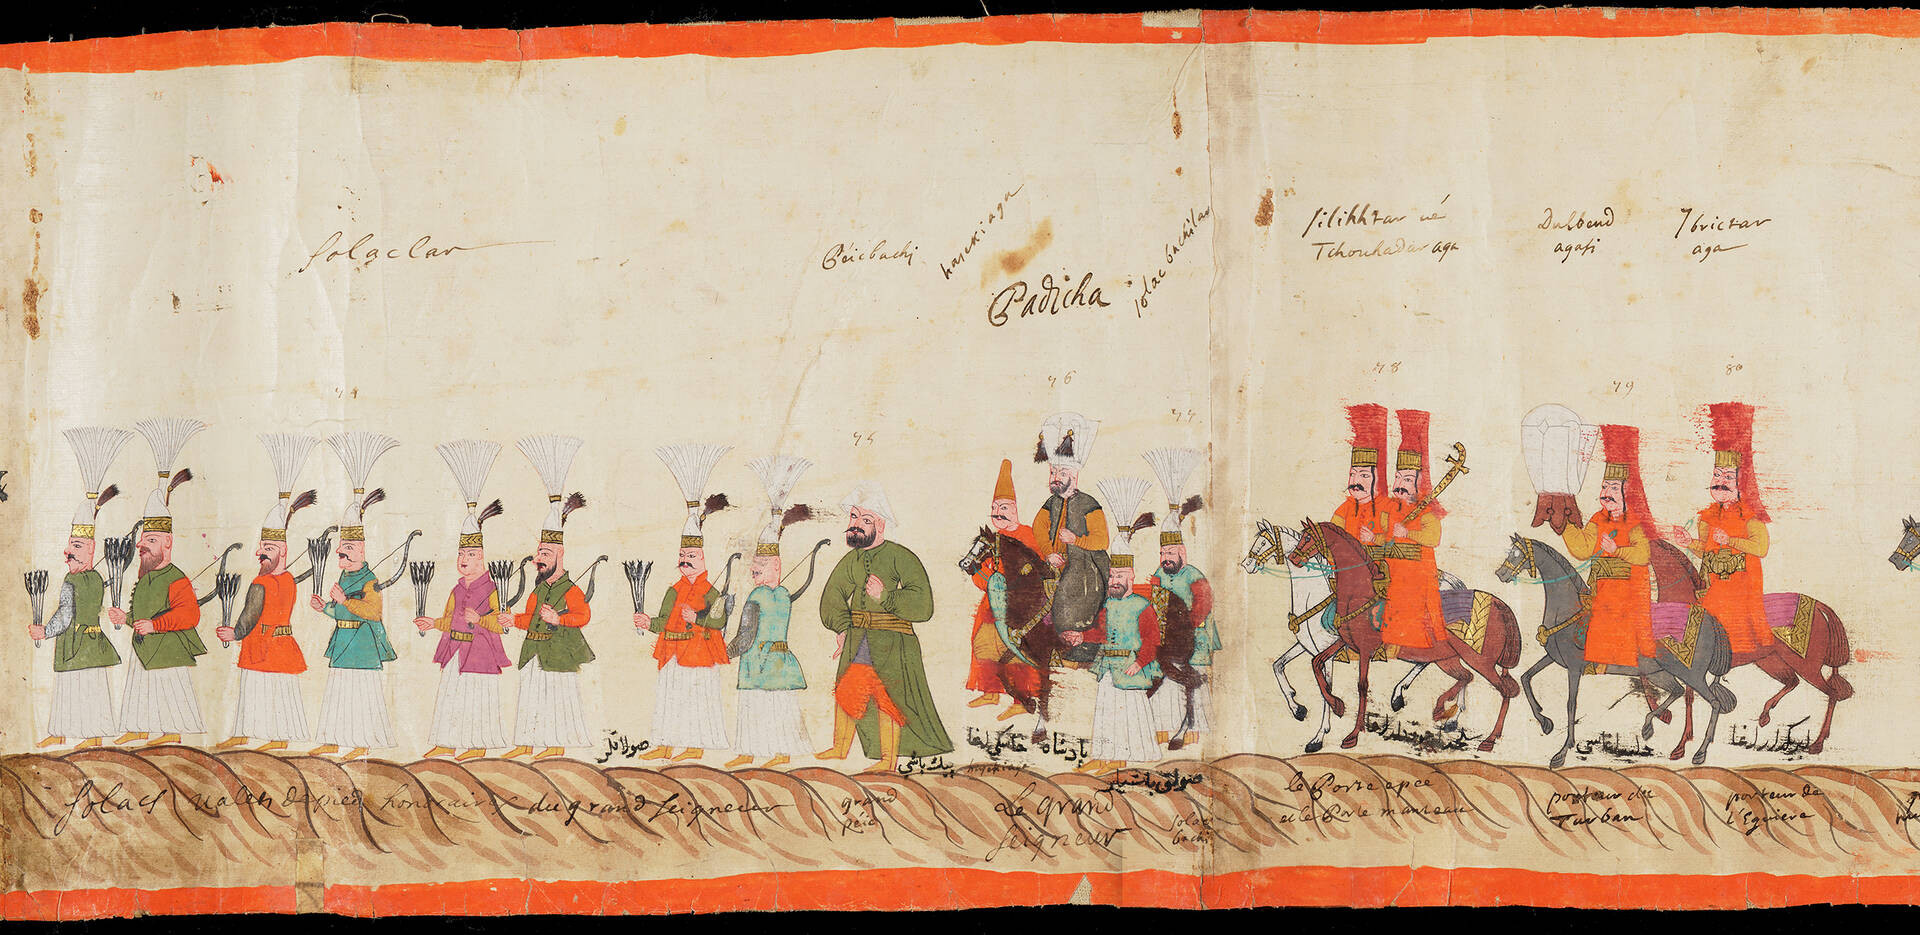 solaclar
Péicbachi
haseki aga
Padicha
solac bachilar
silikhtar vé
Tchouhadar aga
Dulbend
agasi
Ibrictar
aga
74
75
76
77
78
79
80
صولاقلر
پيك باشى
خاصكى اغا
پادشاه
صولاق باشيلر
hasekiaga
solacs valets de pied honoraires du grand seigneur
grand
péic
Le grand
seigneur
solac
bachi
le Porte epée
et le Porte manteau
porteur du
Turban
porteur de
l'Eguiere